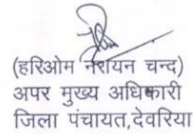 (हरिओम नरायन चन्द)
अपर मुख्य अधिकारी
जिला पंचायत,देवरिया